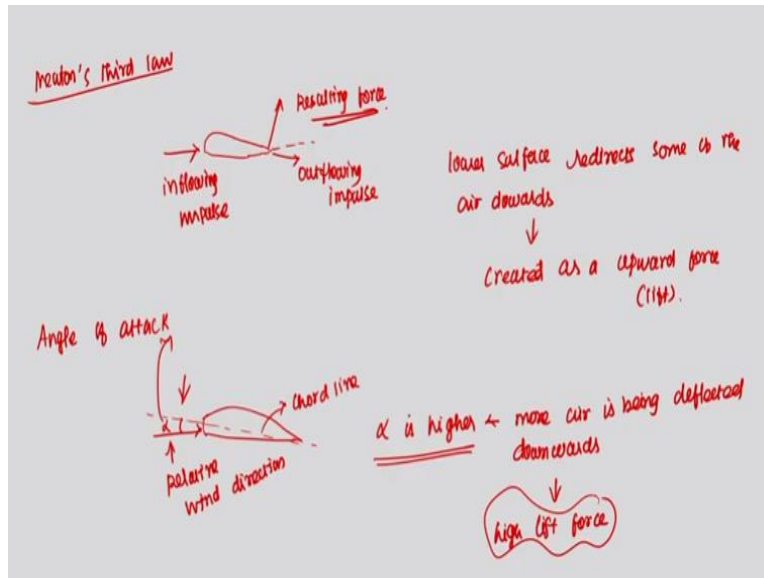 Newton's third law
Resulting force
inflowing
impulse
outflowing
impulse
lower surface redirects some of the
air dowards
↓
Created as a upward force
(lift).
Angle of attack
α
chord line
Relative
wind direction
α is higher ← more air is being deflected
downwards
↓
high lift force